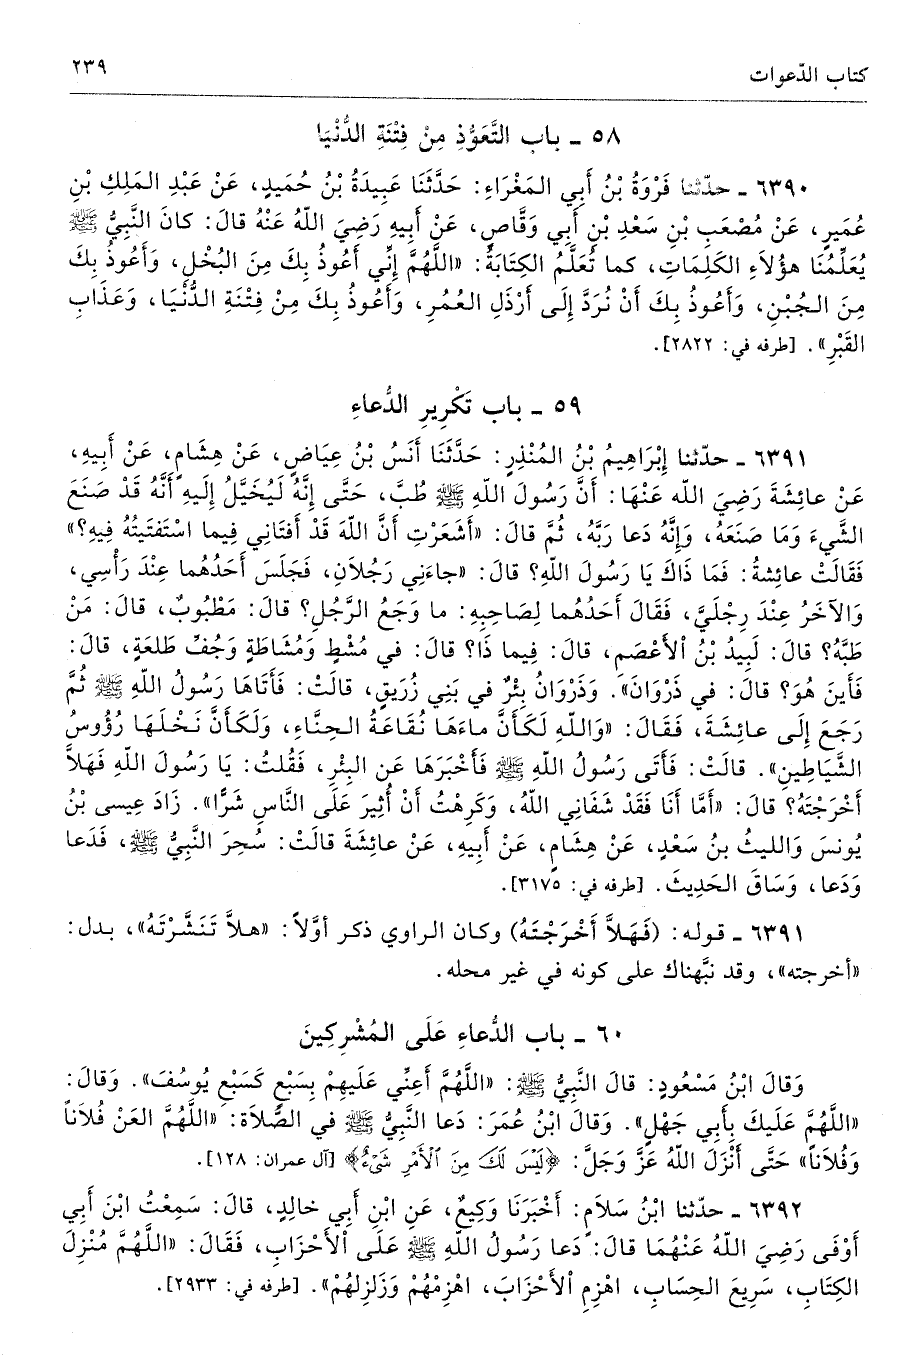 كتاب الدّعوات ٢٣٩
٥٨ ـ باب التَّعَوُّذِ مِنْ فِتْنَةِ الدُّنْيَا
٦٣٩٠ ـ حدّثنا فَرْوَةُ بْنُ أَبِي المَغْرَاءِ: حَدَّثَنَا عَبِيدَةُ بْنُ حُمَيدٍ، عَنْ عَبْدِ المَلِكِ بْنِ
عُمَيرٍ، عَنْ مُصْعَبِ بْنِ سَعْدِ بْنِ أَبِي وَقَّاصٍ، عَنْ أَبِيهِ رَضِيَ اللّهُ عَنْهُ قالَ: كانَ النَّبِيُّ ﷺ
يُعَلِّمُنَا هؤُلاَءِ الكَلِمَاتِ، كما تُعَلَّمُ الكِتَابَةُ: «اللَّهُمَّ إِنِّي أَعُوذُ بِكَ مِنَ البُخْلِ، وَأَعُوذُ بِكَ
مِنَ الجُبْنِ، وَأَعُوذُ بِكَ أَنْ نُرَدَّ إِلَى أَرْذَلِ العُمُرِ، وَأَعُوذُ بِكَ مِنْ فِتْنَةِ الدُّنْيَا، وَعَذَابِ
القَبْرِ». [طرفه في: ٢٨٢٢].
٥٩ ـ باب تَكْرِيرِ الدُّعاءِ
٦٣٩١ ـ حدّثنا إِبْرَاهِيمُ بْنُ المُنْذِرِ: حَدَّثَنَا أَنَسُ بْنُ عِيَاضٍ، عَنْ هِشَامٍ، عَنْ أَبِيهِ،
عَنْ عائِشَةَ رَضِيَ اللّه عَنْهَا: أَنَّ رَسُولَ اللّهِ ﷺ طُبَّ، حَتَّى إِنَّهُ لَيُخَيَّلُ إِلَيهِ أَنَّهُ قَدْ صَنَعَ
الشَّيءَ وَمَا صَنَعَهُ، وَإِنَّهُ دَعا رَبَّهُ، ثُمَّ قالَ: «أَشَعَرْتِ أَنَّ اللّهَ قَدْ أَفتَانِي فِيما اسْتَفتَيتُهُ فِيهِ؟»
فَقَالَتْ عائِشةُ: فَمَا ذَاكَ يَا رَسُولَ اللّهِ؟ قالَ: «جاءَنِي رَجُلاَنِ، فَجَلَسَ أَحَدُهُما عِنْدَ رَأْسِي،
وَالآخَرُ عِنْدَ رِجْلَيَّ، فَقَالَ أَحَدُهُما لِصَاحِبِهِ: ما وَجَعُ الرَّجُلِ؟ قالَ: مَطْبُوبٌ، قالَ: مَنْ
طَبَّهُ؟ قالَ: لَبِيدُ بْنُ الأَعْصَمِ، قالَ: فِيما ذَا؟ قالَ: في مُشْطٍ وَمُشَاطَةٍ وَجُفِّ طَلعَةٍ، قالَ:
فَأَينَ هُوَ؟ قالَ: في ذَرْوَانَ». وَذَرْوَانُ بِئْرٌ في بَنِي زُرَيقٍ، قالَتْ: فَأَتَاهَا رَسُولُ اللّهِ ﷺ ثُمَّ
رَجَعَ إِلَى عائِشَةَ، فَقَالَ: «وَاللّهِ لَكَأَنَّ ماءَهَا نُقَاعَةُ الحِنَّاءِ، وَلَكَأَنَّ نَخْلَهَا رُؤُوسُ
الشَّيَاطِينِ». قالَتْ: فَأَتَى رَسُولُ اللّهِ ﷺ فَأَخْبَرَهَا عَنِ البِئْرِ، فَقُلتُ: يَا رَسُولَ اللّهِ فَهَلاَّ
أَخْرَجْتَهُ؟ قالَ: «أَمَّا أَنَا فَقَدْ شَفَانِي اللّهُ، وَكَرِهْتُ أَنْ أُثِيرَ عَلَى النَّاسِ شَرًّا». زَادَ عِيسى بْنُ
يُونسَ وَالليثُ بنُ سَعْدٍ، عَنْ هِشَامٍ، عَنْ أَبِيهِ، عَنْ عائِشَةَ قالَتْ: سُحِرَ النَّبِيُّ ﷺ، فَدَعا
وَدَعا، وَسَاقَ الحَدِيثَ. [طرفه في: ٣١٧٥].
٦٣٩١ ـ قوله: (فَهَلاَّ أَخْرَجْتَهُ) وكان الراوي ذكر أوَّلاً: «هلاَّ تَنَشَّرْتَهُ»، بدل:
«أخرجته»، وقد نبَّهناك على كونه في غير محله.
٦٠ ـ باب الدُّعاءِ عَلَى المُشْرِكِينَ
وَقالَ ابْنُ مَسْعُودٍ: قالَ النَّبِيُّ ﷺ: «اللَّهُمَّ أَعِنِّي عَلَيهِمْ بِسَبْعٍ كَسَبْعِ يُوسُفَ». وَقالَ:
«اللَّهُمَّ عَلَيكَ بِأَبِي جَهْلٍ». وَقالَ ابْنُ عُمَرَ: دَعا النَّبِيُّ ﷺ في الصَّلاَة: «اللَّهُمَّ العَنْ فُلاَناً
وَفُلاَناً» حَتَّى أَنْزَلَ اللّهُ عَزَّ وَجَلَّ: ﴿لَيْسَ لَكَ مِنَ ٱلْأَمْرِ شَىْءٌ﴾ [آل عمران: ١٢٨].
٦٣٩٢ ـ حدّثنا ابْنُ سَلاَمٍ: أَخْبَرَنَا وَكِيعٌ، عَنِ ابْنِ أَبِي خالِدٍ، قالَ: سَمِعْتُ ابْنَ أَبِي
أَوْفَى رَضِيَ اللّهُ عَنْهُمَا قالَ: دَعا رَسُولُ اللّهِ ﷺ عَلَى الأَحْزَابِ، فَقَالَ: «اللَّهُمَّ مُنْزِلَ
الكِتَابِ، سَرِيعَ الحِسَابِ، اهْزِمِ الأَحْزَابَ، اهْزِمْهُمْ وَزَلزِلهُمْ». [طرفه في: ٢٩٣٣].